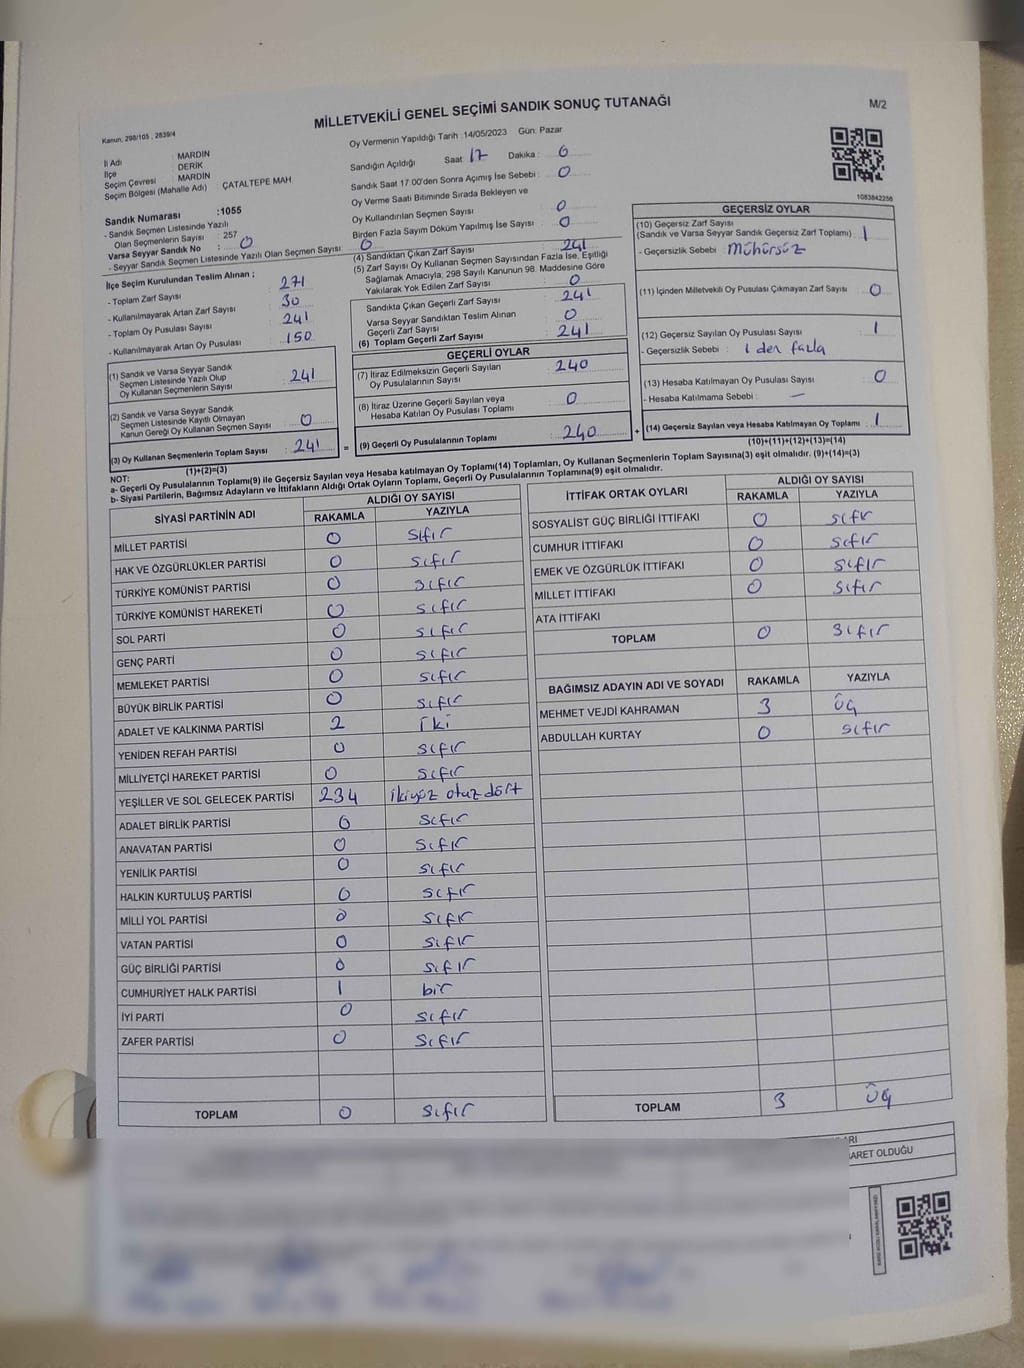 MİLLETVEKİLİ GENEL SEÇİMİ SANDIK SONUÇ TUTANAĞI
M/2
Kanun, 298/105 , 2839/4
Oy Vermenin Yapıldığı Tarih :14/05/2023 Gün: Pazar
İl Adı : MARDİN
İlçe : DERİK
Seçim Çevresi : MARDİN
Seçim Bölgesi (Mahalle Adı) ÇATALTEPE MAH
Sandığın Açıldığı Saat : 17 Dakika : 0
Sandık Saat 17:00'den Sonra Açımış İse Sebebi : 0
Oy Verme Saati Bitiminde Sırada Bekleyen ve
Oy Kullandırılan Seçmen Sayısı : 0
Birden Fazla Sayım Döküm Yapılmış İse Sayısı : 0
1083842256
Sandık Numarası :1055
- Sandık Seçmen Listesinde Yazılı
Olan Seçmenlerin Sayısı : 257
Varsa Seyyar Sandık No : 0
- Seyyar Sandık Seçmen Listesinde Yazılı Olan Seçmen Sayısı : 0
İlçe Seçim Kurulundan Teslim Alınan ;
- Toplam Zarf Sayısı : 271
- Kullanılmayarak Artan Zarf Sayısı : 30
- Toplam Oy Pusulası Sayısı : 241
- Kullanılmayarak Artan Oy Pusulası : 150
(1) Sandık ve Varsa Seyyar Sandık
Seçmen Listesinde Yazılı Olup
Oy Kullanan Seçmenlerin Sayısı : 241
(2) Sandık ve Varsa Seyyar Sandık
Seçmen Listesinde Kayıtlı Olmayan
Kanun Gereği Oy Kullanan Seçmen Sayısı : 0
(3) Oy Kullanan Seçmenlerin Toplam Sayısı : 241
(1)+(2)=(3)
(4) Sandıktan Çıkan Zarf Sayısı : 241
(5) Zarf Sayısı Oy Kullanan Seçmen Sayısından Fazla İse, Eşitliği
Sağlamak Amacıyla, 298 Sayılı Kanunun 98. Maddesine Göre
Yakılarak Yok Edilen Zarf Sayısı : 0
Sandıkta Çıkan Geçerli Zarf Sayısı : 241
Varsa Seyyar Sandıktan Teslim Alınan
Geçerli Zarf Sayısı : 0
(6) Toplam Geçerli Zarf Sayısı : 241
GEÇERLİ OYLAR
(7) İtiraz Edilmeksizin Geçerli Sayılan
Oy Pusulalarının Sayısı : 240
(8) İtiraz Üzerine Geçerli Sayılan veya
Hesaba Katılan Oy Pusulası Toplamı : 0
= (9) Geçerli Oy Pusulalarının Toplamı : 240 +
GEÇERSİZ OYLAR
(10) Geçersiz Zarf Sayısı
(Sandık ve Varsa Seyyar Sandık Geçersiz Zarf Toplamı) : 1
- Geçersizlik Sebebi : Mühürsüz
(11) İçinden Milletvekili Oy Pusulası Çıkmayan Zarf Sayısı : 0
(12) Geçersiz Sayılan Oy Pusulası Sayısı : 1
- Geçersizlik Sebebi : 1 den fazla
(13) Hesaba Katılmayan Oy Pusulası Sayısı : 0
- Hesaba Katılmama Sebebi : —
(14) Geçersiz Sayılan veya Hesaba Katılmayan Oy Toplamı : 1
(10)+(11)+(12)+(13)=(14)
NOT:
a- Geçerli Oy Pusulalarının Toplamı(9) ile Geçersiz Sayılan veya Hesaba katılmayan Oy Toplamı(14) Toplamları, Oy Kullanan Seçmenlerin Toplam Sayısına(3) eşit olmalıdır. (9)+(14)=(3)
b- Siyasi Partilerin, Bağımsız Adayların ve İttifakların Aldığı Ortak Oyların Toplamı, Geçerli Oy Pusulalarının Toplamına(9) eşit olmalıdır.
SİYASİ PARTİNİN ADI ALDIĞI OY SAYISI
RAKAMLA YAZIYLA
MİLLET PARTİSİ 0 Sıfır
HAK VE ÖZGÜRLÜKLER PARTİSİ 0 sıfır
TÜRKİYE KOMÜNİST PARTİSİ 0 sıfır
TÜRKİYE KOMÜNİST HAREKETİ 0 sıfır
SOL PARTİ 0 sıfır
GENÇ PARTİ 0 sıfır
MEMLEKET PARTİSİ 0 sıfır
BÜYÜK BİRLİK PARTİSİ 0 sıfır
ADALET VE KALKINMA PARTİSİ 2 iki
YENİDEN REFAH PARTİSİ 0 sıfır
MİLLİYETÇİ HAREKET PARTİSİ 0 sıfır
YEŞİLLER VE SOL GELECEK PARTİSİ 234 ikiyüz otuz dört
ADALET BİRLİK PARTİSİ 0 sıfır
ANAVATAN PARTİSİ 0 sıfır
YENİLİK PARTİSİ 0 sıfır
HALKIN KURTULUŞ PARTİSİ 0 sıfır
MİLLİ YOL PARTİSİ 0 sıfır
VATAN PARTİSİ 0 sıfır
GÜÇ BİRLİĞİ PARTİSİ 0 sıfır
CUMHURİYET HALK PARTİSİ 1 bir
İYİ PARTİ 0 sıfır
ZAFER PARTİSİ 0 sıfır
TOPLAM 0 sıfır
İTTİFAK ORTAK OYLARI ALDIĞI OY SAYISI
RAKAMLA YAZIYLA
SOSYALİST GÜÇ BİRLİĞİ İTTİFAKI 0 sıfır
CUMHUR İTTİFAKI 0 sıfır
EMEK VE ÖZGÜRLÜK İTTİFAKI 0 sıfır
MİLLET İTTİFAKI 0 sıfır
ATA İTTİFAKI
TOPLAM 0 sıfır
BAĞIMSIZ ADAYIN ADI VE SOYADI RAKAMLA YAZIYLA
MEHMET VEJDİ KAHRAMAN 3 üç
ABDULLAH KURTAY 0 sıfır
TOPLAM 3 üç
ARET OLDUĞU